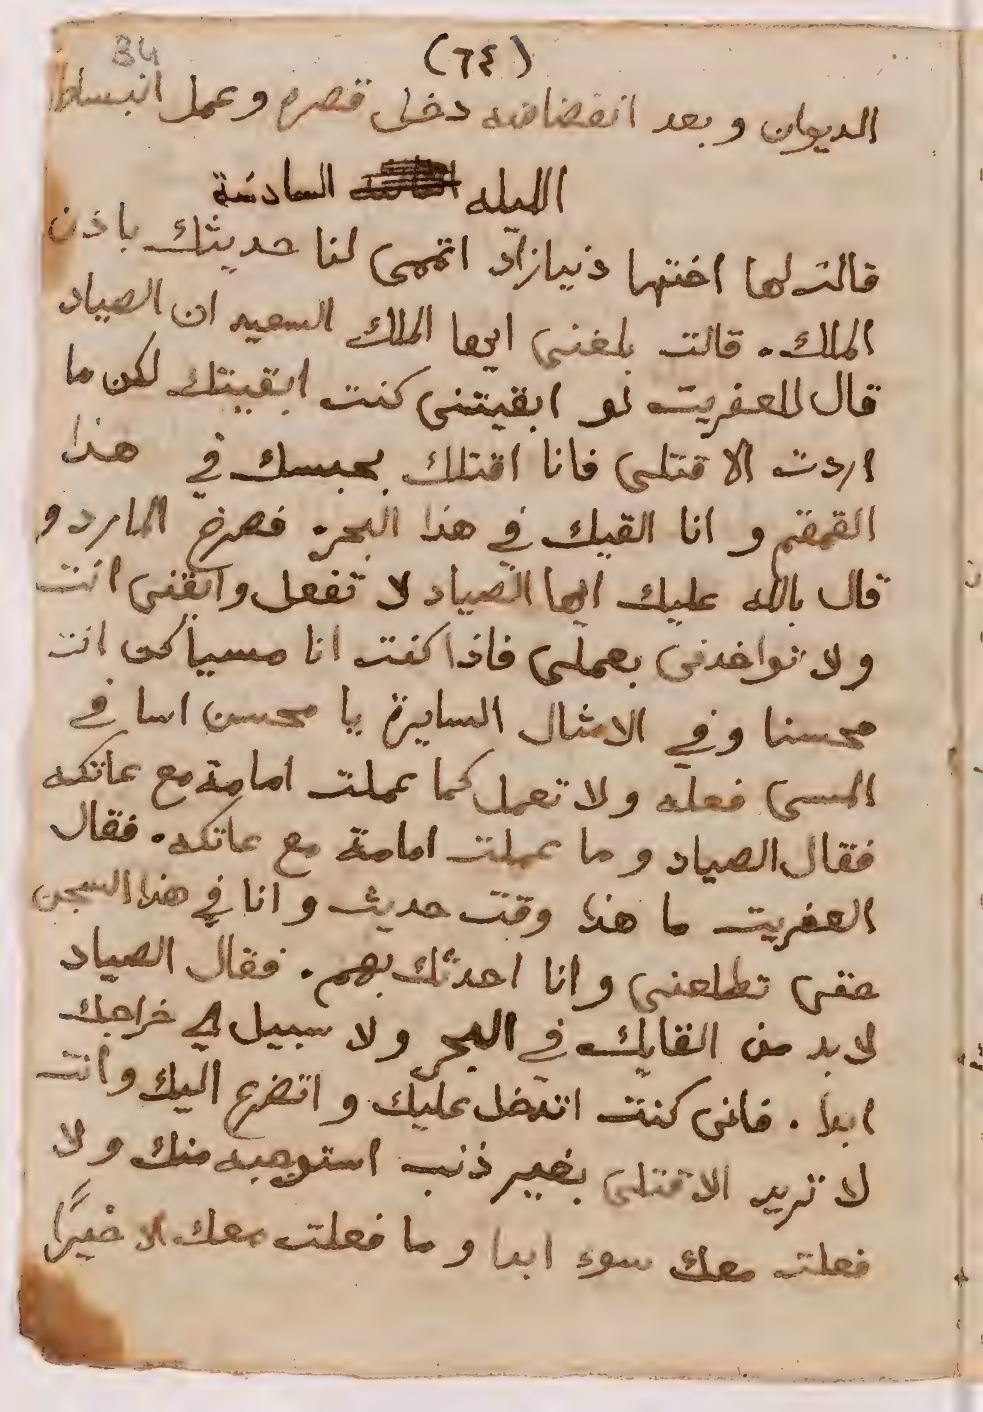 34
(٦٤)
الديوان وبعد انفضاضه دخل قصره وعمل انبساط
الليله السادسة
قالت لها اختها دنيازاد اتممى لنا حديثك باذن
الملك. قالت بلغنى ايها الملك السعيد ان الصياد
قال للعفريت لو ابقيتنى كنت ابقيتك لكن ما
اردت الا قتلى فانا اقتلك بحبسك في هذا
القمقم و انا القيك في هذا البحر. فصرخ المارد و
قال بالله عليك ايها الصياد لا تفعل وابقنى انت
ولا تواخدنى بعملى فاذا كنت انا مسيا كن انت
محسنا وفي الامثال السايرة يا محسن اسا في
المسى فعله ولا تعمل كما عملت امامة مع عاتكه
فقال الصياد وما عملت امامة مع عاتكه. فقال
العفريت ما هذا وقت حديث و انا في هذا السجن
حتى تطلعنى وانا احدثك بهم. فقال الصياد
لابد من القايك في البحر ولا سبيل الى خراجك
ابدا. فانى كنت اتدخل عليك و اتضرع اليك وانت
لا تريد الا قتلى بغير ذنب استوجبه منك ولا
فعلت معك سوء ابدا و ما فعلت معك الا خيرًا